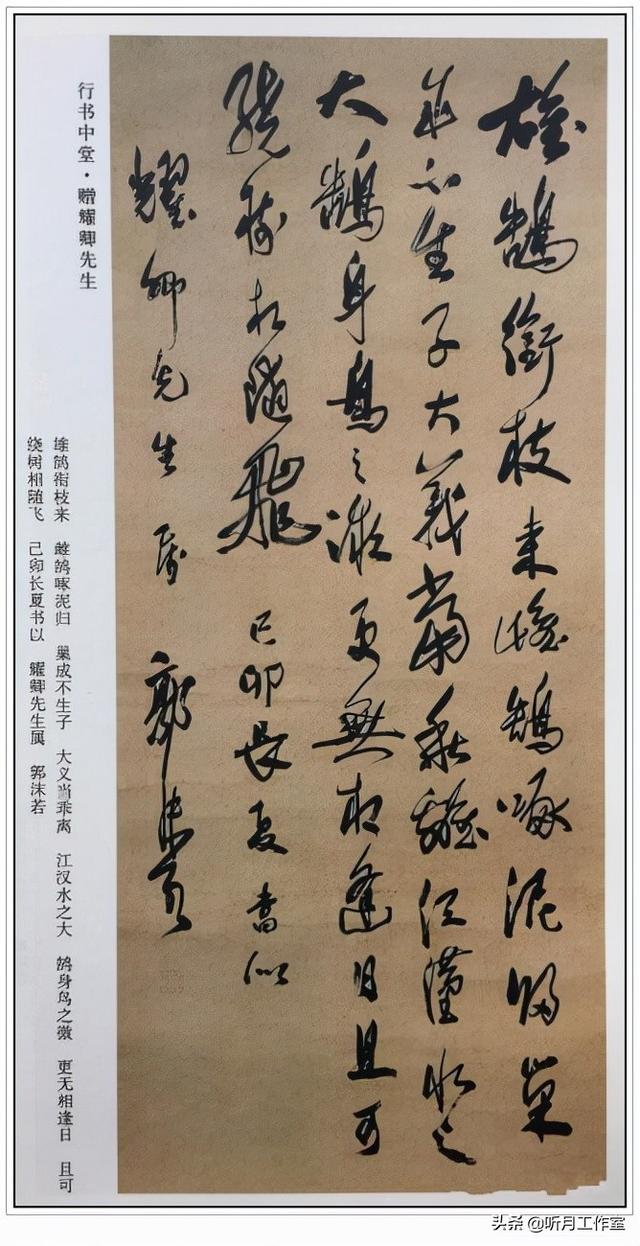 雄鵠銜枝来雌鵠啄泥歸巢
成不生子大義當乖離江漢水之
大鵠身鳥之微更無相逢日且可
繞樹相隨飛 己卯長夏書似
耀卿先生属 郭沫若
行书中堂·赠耀卿先生
雄鹄衔枝来 雌鹄啄泥归 巢成不生子 大义当乖离 江汉水之大 鹄身鸟之微 更无相逢日 且可
绕树相随飞 己卯长夏书以 耀卿先生属 郭沫若
头条@听月工作室